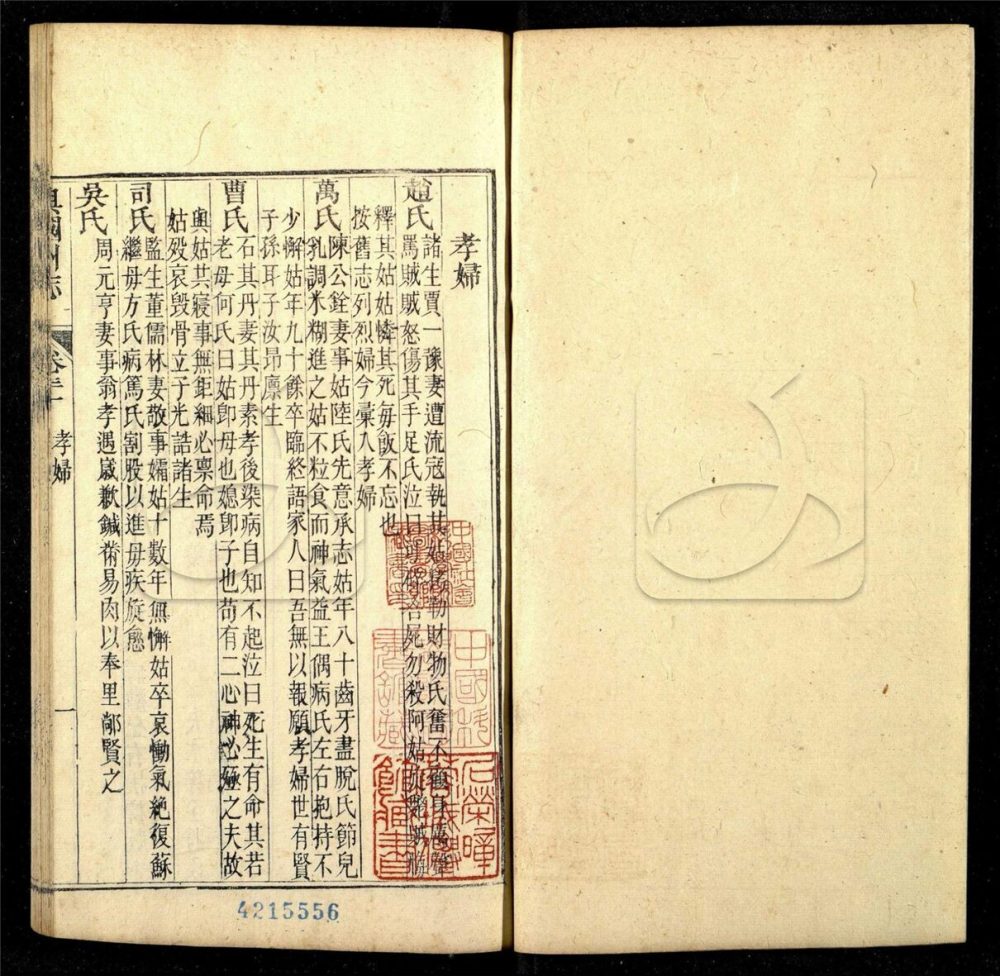 孝婦
趙氏諸生賈一豫妻遭流寇執其姑勒財物氏奮不顧身厲聲
罵賊賊怒傷其手足氏泣曰可殺吾勿殺阿姑
釋其姑姑憐其死每飯不忘也
按舊志列烈婦今彙入孝婦
萬氏陳公銓妻事姑陸氏先意承志姑年八十齒牙盡脫氏節兒
乳調米糊進之姑不粒食而神氣益王偶病氏左右抱持不
少懈姑年九十餘卒臨終語家人曰吾無以報願孝婦世有賢
子孫耳子汝昂廪生
曹氏石其丹妻其丹素孝後染病自知不起泣曰死生有命其若
老母何氏曰姑卽母也媳卽子也苟有二心神必殛之夫故
與姑共寢事無鉅細必禀命焉
姑歿哀毀骨立子光誥諸生
司氏監生董儒林妻敬事孀姑十數年無懈姑卒哀慟氣絶復蘇
繼母方氏病篤氏割股以進母疾旋愈
吳氏周元亨妻事翁孝遇歲歉鍼黹易肉以奉里鄰賢之
國州志
卷
孝婦
一
4215556